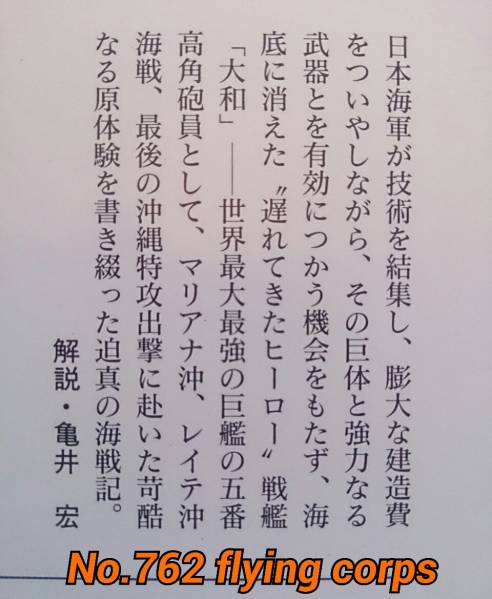 日本海軍が技術を結集し、膨大な建造費
をついやしながら、その巨体と強力なる
武器とを有効につかう機会をもたず、海
底に消えた〝遅れてきたヒーロー〟戦艦
「大和」――世界最大最強の巨艦の五番
高角砲員として、マリアナ沖、レイテ沖
海戦、最後の沖縄特攻出撃に赴いた苛酷
なる原体験を書き綴った迫真の海戦記。
解説・亀井 宏
No.762 flying corps